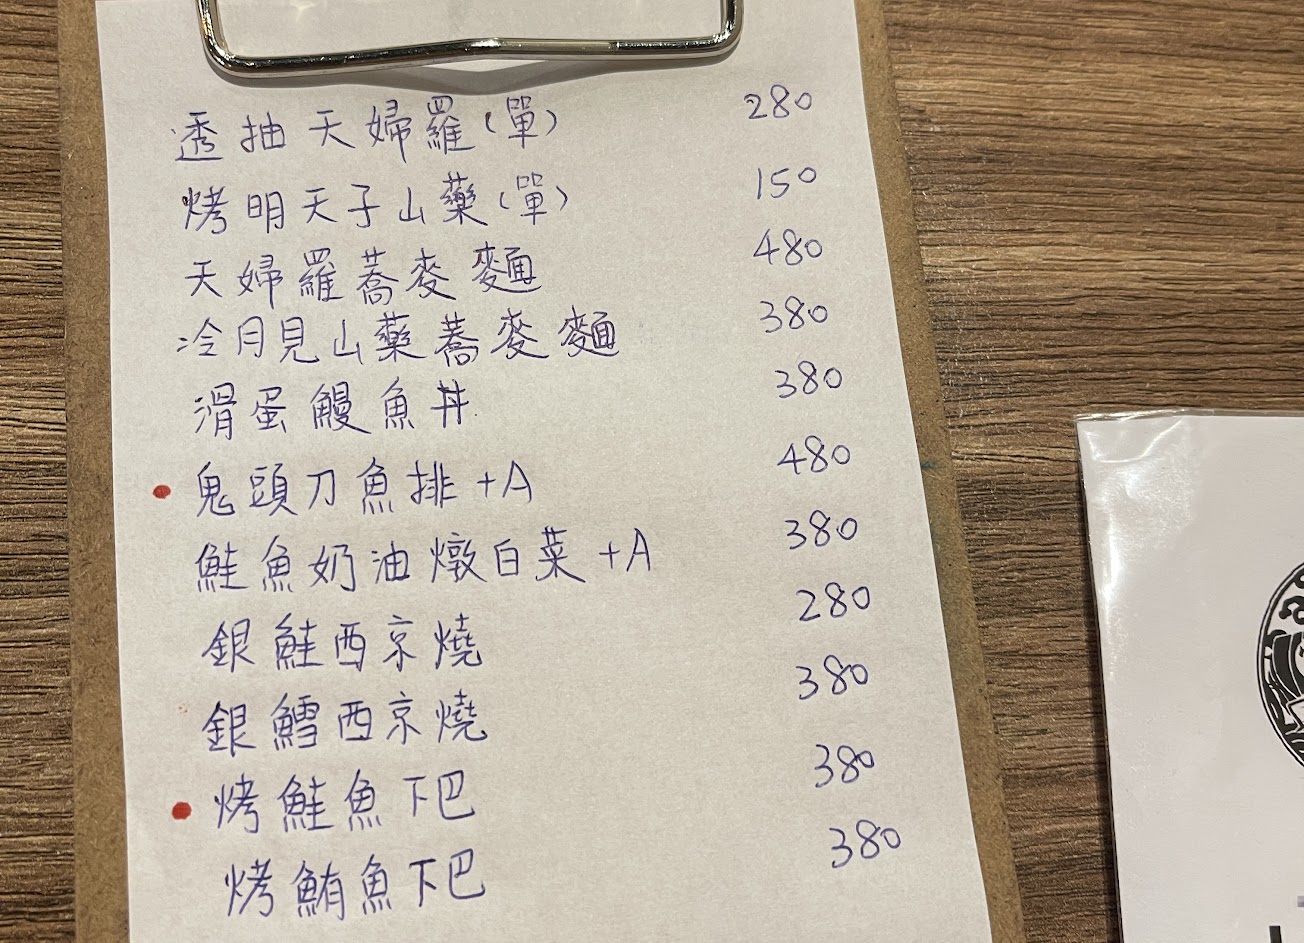 透抽天婦羅(單) 280
烤明天子山藥(單) 150
天婦羅蕎麥麵 480
冷月見山藥蕎麥麵 380
滑蛋鰻魚丼 380
鬼頭刀魚排+A 480
鮭魚奶油燉白菜+A 380
銀鮭西京燒 280
銀鱈西京燒 380
烤鮭魚下巴 380
烤鮪魚下巴 380